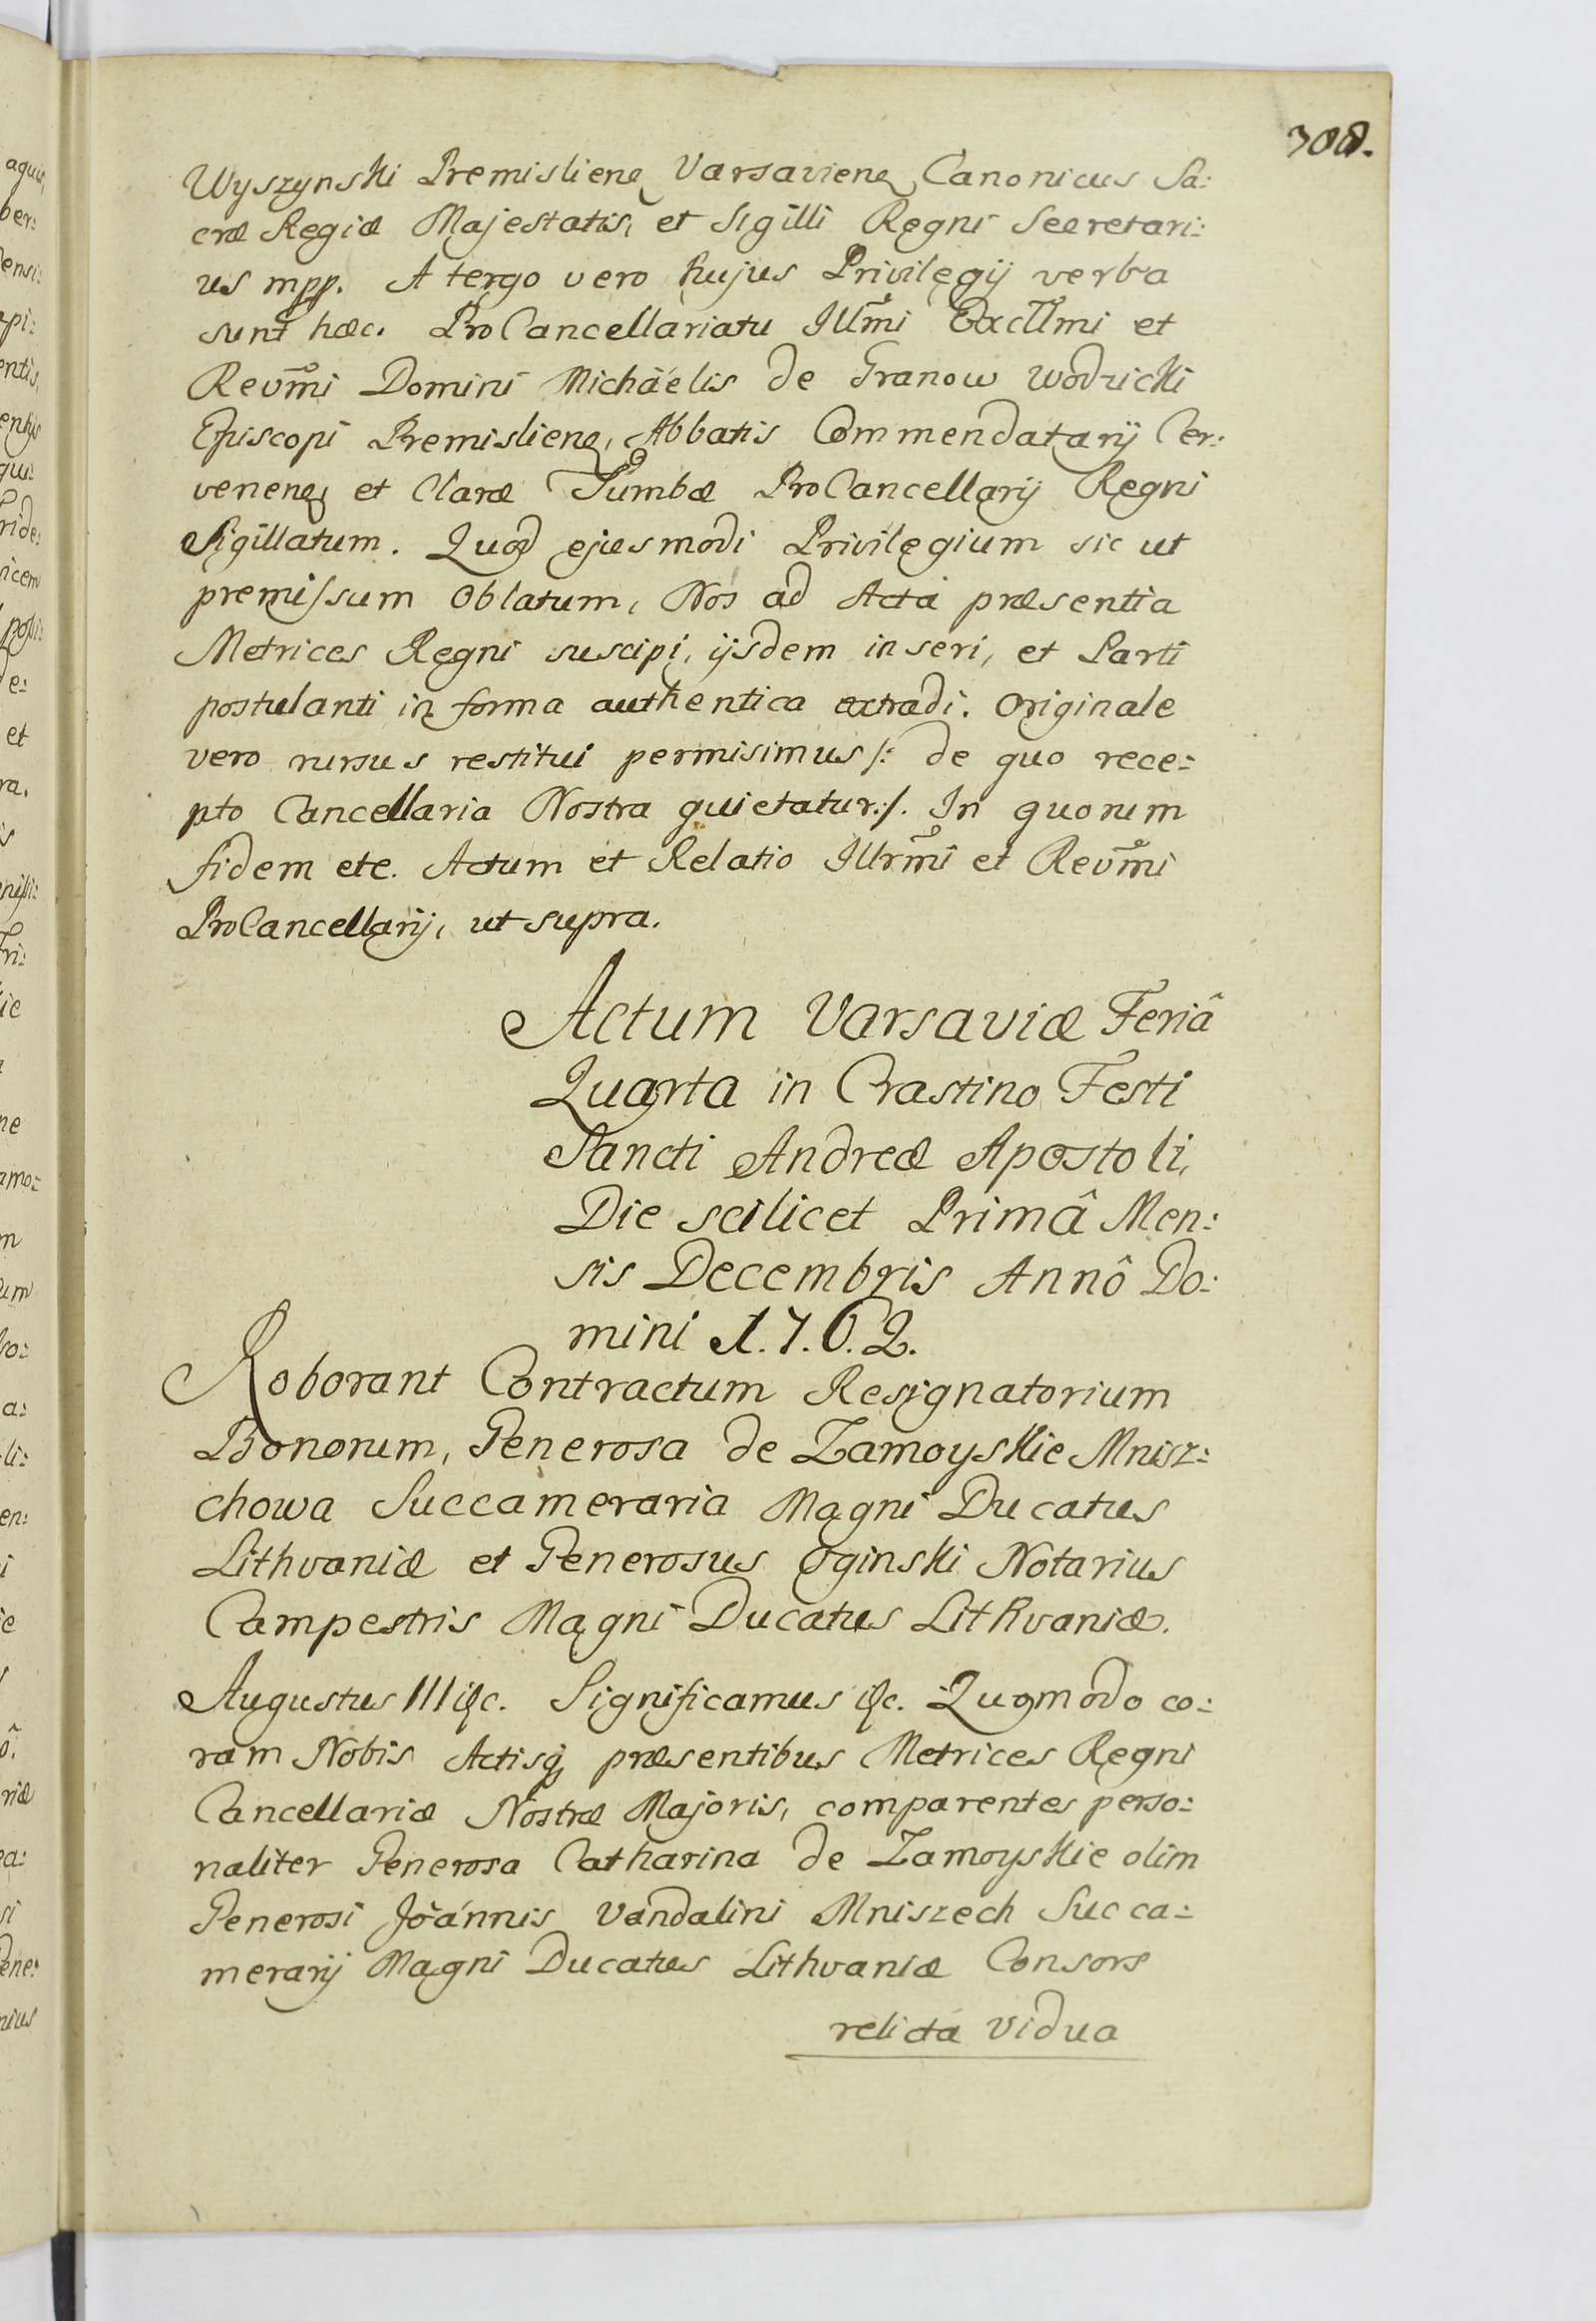 308.
Wyszynski Premisliens Varsaviens Canonicus Sa:
cræ Regiæ Majestatis, et Sigilli Regni Secretari:
us mpp. A tergo vero hujus Privilegij verba
sunt hæc. ProCancellariatu Illm̃i Excllmi et
Revm̃i Domini Michäelis de Granow Wodzicki
Episcopi Premisliens, Abbatis Commendatarij Cer:
venens et Claræ Tumbæ ProCancellarij Regni
Sigillatum. Quod ejusmodi Privilegium sic ut
premissum oblatum, Nos ad Acta præsentia
Metrices Regni suscipi, ijsdem inseri, et Parti
postulanti in forma authentica extradi. Originale
vero rursus restitui permisimus /: de quo rece:
pto Cancellaria Nostra quietatur :/. In quorum
fidem etc. Actum et Relatio Illrm̃i et Revm̃i
ProCancellarij, ut supra.
Actum Varsaviæ Feriâ
Quarta in Crastino Festi
Sancti Andreæ Apostoli,
Die scilicet Primâ Men:
sis Decembris Annô Do:
mini 1.7.6.2.
Roborant Contractum Resignatorium
Bonorum, Generosa de Zamoyskie Mnisz:
chowa Succameraria Magni Ducatus
Lithvaniæ et Generosus Oginski Notarius
Campestris Magni Ducatus Lithvaniæ.
Augustus III &c. Significamus &c. Quomodo co:
ram Nobis Actisq præsentibus Metrices Regni
Cancellariæ Nostræ Majoris, comparentes perso:
naliter Generosa Catharina de Zamoyskie olim
Generosi Joánnis Vandalini Mniszech Succa:
merarij Magni Ducatus Lithvaniæ Consors
relicta Vidua